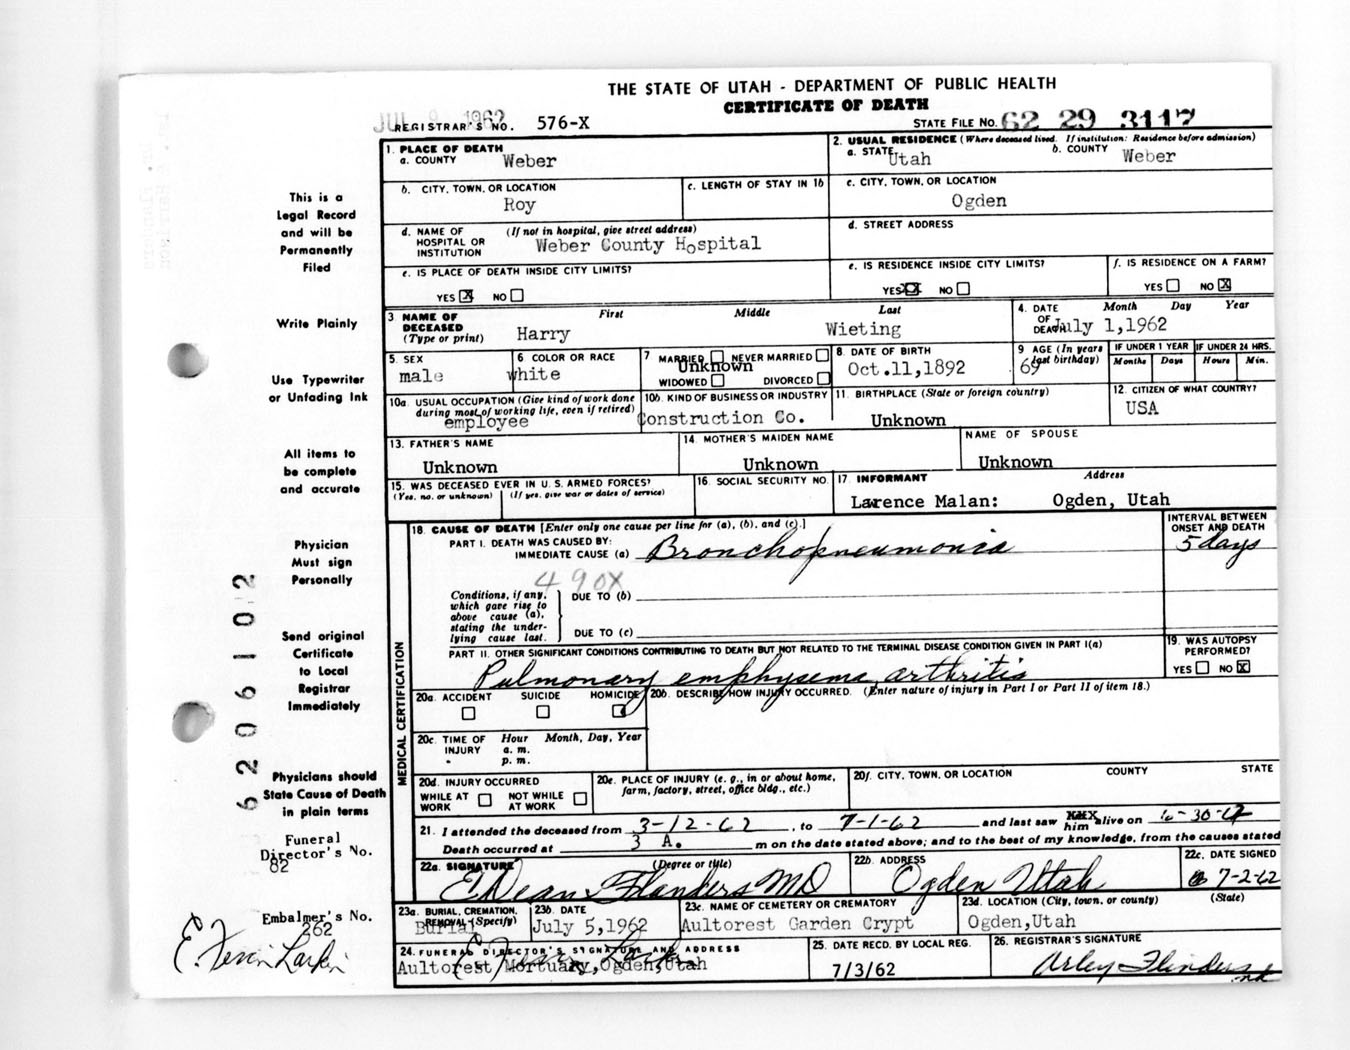 THE STATE OF UTAH - DEPARTMENT OF PUBLIC HEALTH
CERTIFICATE OF DEATH
JUL 9 1962
REGISTRAR'S NO. 576-X
STATE FILE NO. 62 29 3117
1. PLACE OF DEATH
a. COUNTY Weber
2. USUAL RESIDENCE (Where deceased lived. If institution: Residence before admission)
a. STATE Utah b. COUNTY Weber
b. CITY, TOWN, OR LOCATION
Roy
c. LENGTH OF STAY IN 1b
c. CITY, TOWN, OR LOCATION
Ogden
d. NAME OF HOSPITAL OR INSTITUTION (If not in hospital, give street address)
Weber County Hospital
d. STREET ADDRESS
e. IS PLACE OF DEATH INSIDE CITY LIMITS?
YES X NO
e. IS RESIDENCE INSIDE CITY LIMITS?
YES X NO
f. IS RESIDENCE ON A FARM?
YES NO X
3 NAME OF DECEASED (Type or print) First Middle Last
Harry Wieting
4. DATE OF DEATH Month Day Year
July 1,1962
5. SEX
male
6 COLOR OR RACE
white
7 MARRIED NEVER MARRIED
Unknown
WIDOWED DIVORCED
8. DATE OF BIRTH
Oct.11,1892
9 AGE (In years last birthday)
69
IF UNDER 1 YEAR
Months Days
IF UNDER 24 HRS.
Hours Min.
10a. USUAL OCCUPATION (Give kind of work done during most of working life, even if retired)
employee
10b. KIND OF BUSINESS OR INDUSTRY
Construction Co.
11. BIRTHPLACE (State or foreign country)
Unknown
12. CITIZEN OF WHAT COUNTRY?
USA
13. FATHER'S NAME
Unknown
14. MOTHER'S MAIDEN NAME
Unknown
NAME OF SPOUSE
Unknown
15. WAS DECEASED EVER IN U. S. ARMED FORCES?
(Yes, no, or unknown) (If yes, give war or dates of service)
16. SOCIAL SECURITY NO.
17 INFORMANT Address
Lawrence Malan: Ogden, Utah
18. CAUSE OF DEATH [Enter only one cause per line for (a), (b), and (c).]
PART I. DEATH WAS CAUSED BY:
IMMEDIATE CAUSE (a) Bronchopneumonia
INTERVAL BETWEEN ONSET AND DEATH
5 days
490X
Conditions, if any, which gave rise to above cause (a), stating the underlying cause last.
DUE TO (b)
DUE TO (c)
PART II. OTHER SIGNIFICANT CONDITIONS CONTRIBUTING TO DEATH BUT NOT RELATED TO THE TERMINAL DISEASE CONDITION GIVEN IN PART I(a)
Pulmonary emphysema, arthritis
19. WAS AUTOPSY PERFORMED?
YES NO X
MEDICAL CERTIFICATION
20a. ACCIDENT SUICIDE HOMICIDE
20b. DESCRIBE HOW INJURY OCCURRED. (Enter nature of injury in Part I or Part II of item 18.)
20c. TIME OF INJURY Hour Month, Day, Year
a. m.
p. m.
20d. INJURY OCCURRED
WHILE AT WORK NOT WHILE AT WORK
20e. PLACE OF INJURY (e. g., in or about home, farm, factory, street, office bldg., etc.)
20f. CITY, TOWN, OR LOCATION COUNTY STATE
21. I attended the deceased from 3-12-62, to 7-1-62 and last saw him alive on 6-30-62
Death occurred at 3 A. m on the date stated above; and to the best of my knowledge, from the causes stated
22a. SIGNATURE (Degree or title)
E. Dean Flanders MD
22b. ADDRESS
Ogden Utah
22c. DATE SIGNED
7-2-62
23a. BURIAL, CREMATION, REMOVAL (Specify)
Burial
23b. DATE
July 5,1962
23c. NAME OF CEMETERY OR CREMATORY
Aultorest Garden Crypt
23d. LOCATION (City, town, or county) (State)
Ogden,Utah
24. FUNERAL DIRECTOR'S SIGNATURE AND ADDRESS
Aultorest Mortuary,Ogden,Utah
25. DATE RECD. BY LOCAL REG.
7/3/62
26. REGISTRAR'S SIGNATURE
This is a
Legal Record
and will be
Permanently
Filed
Write Plainly
Use Typewriter
or Unfading Ink
All items to
be complete
and accurate
Physician
Must sign
Personally
Send original
Certificate
to Local
Registrar
Immediately
Physicians should
State Cause of Death
in plain terms
Funeral
Director's No.
82
Embalmer's No.
262
6206102